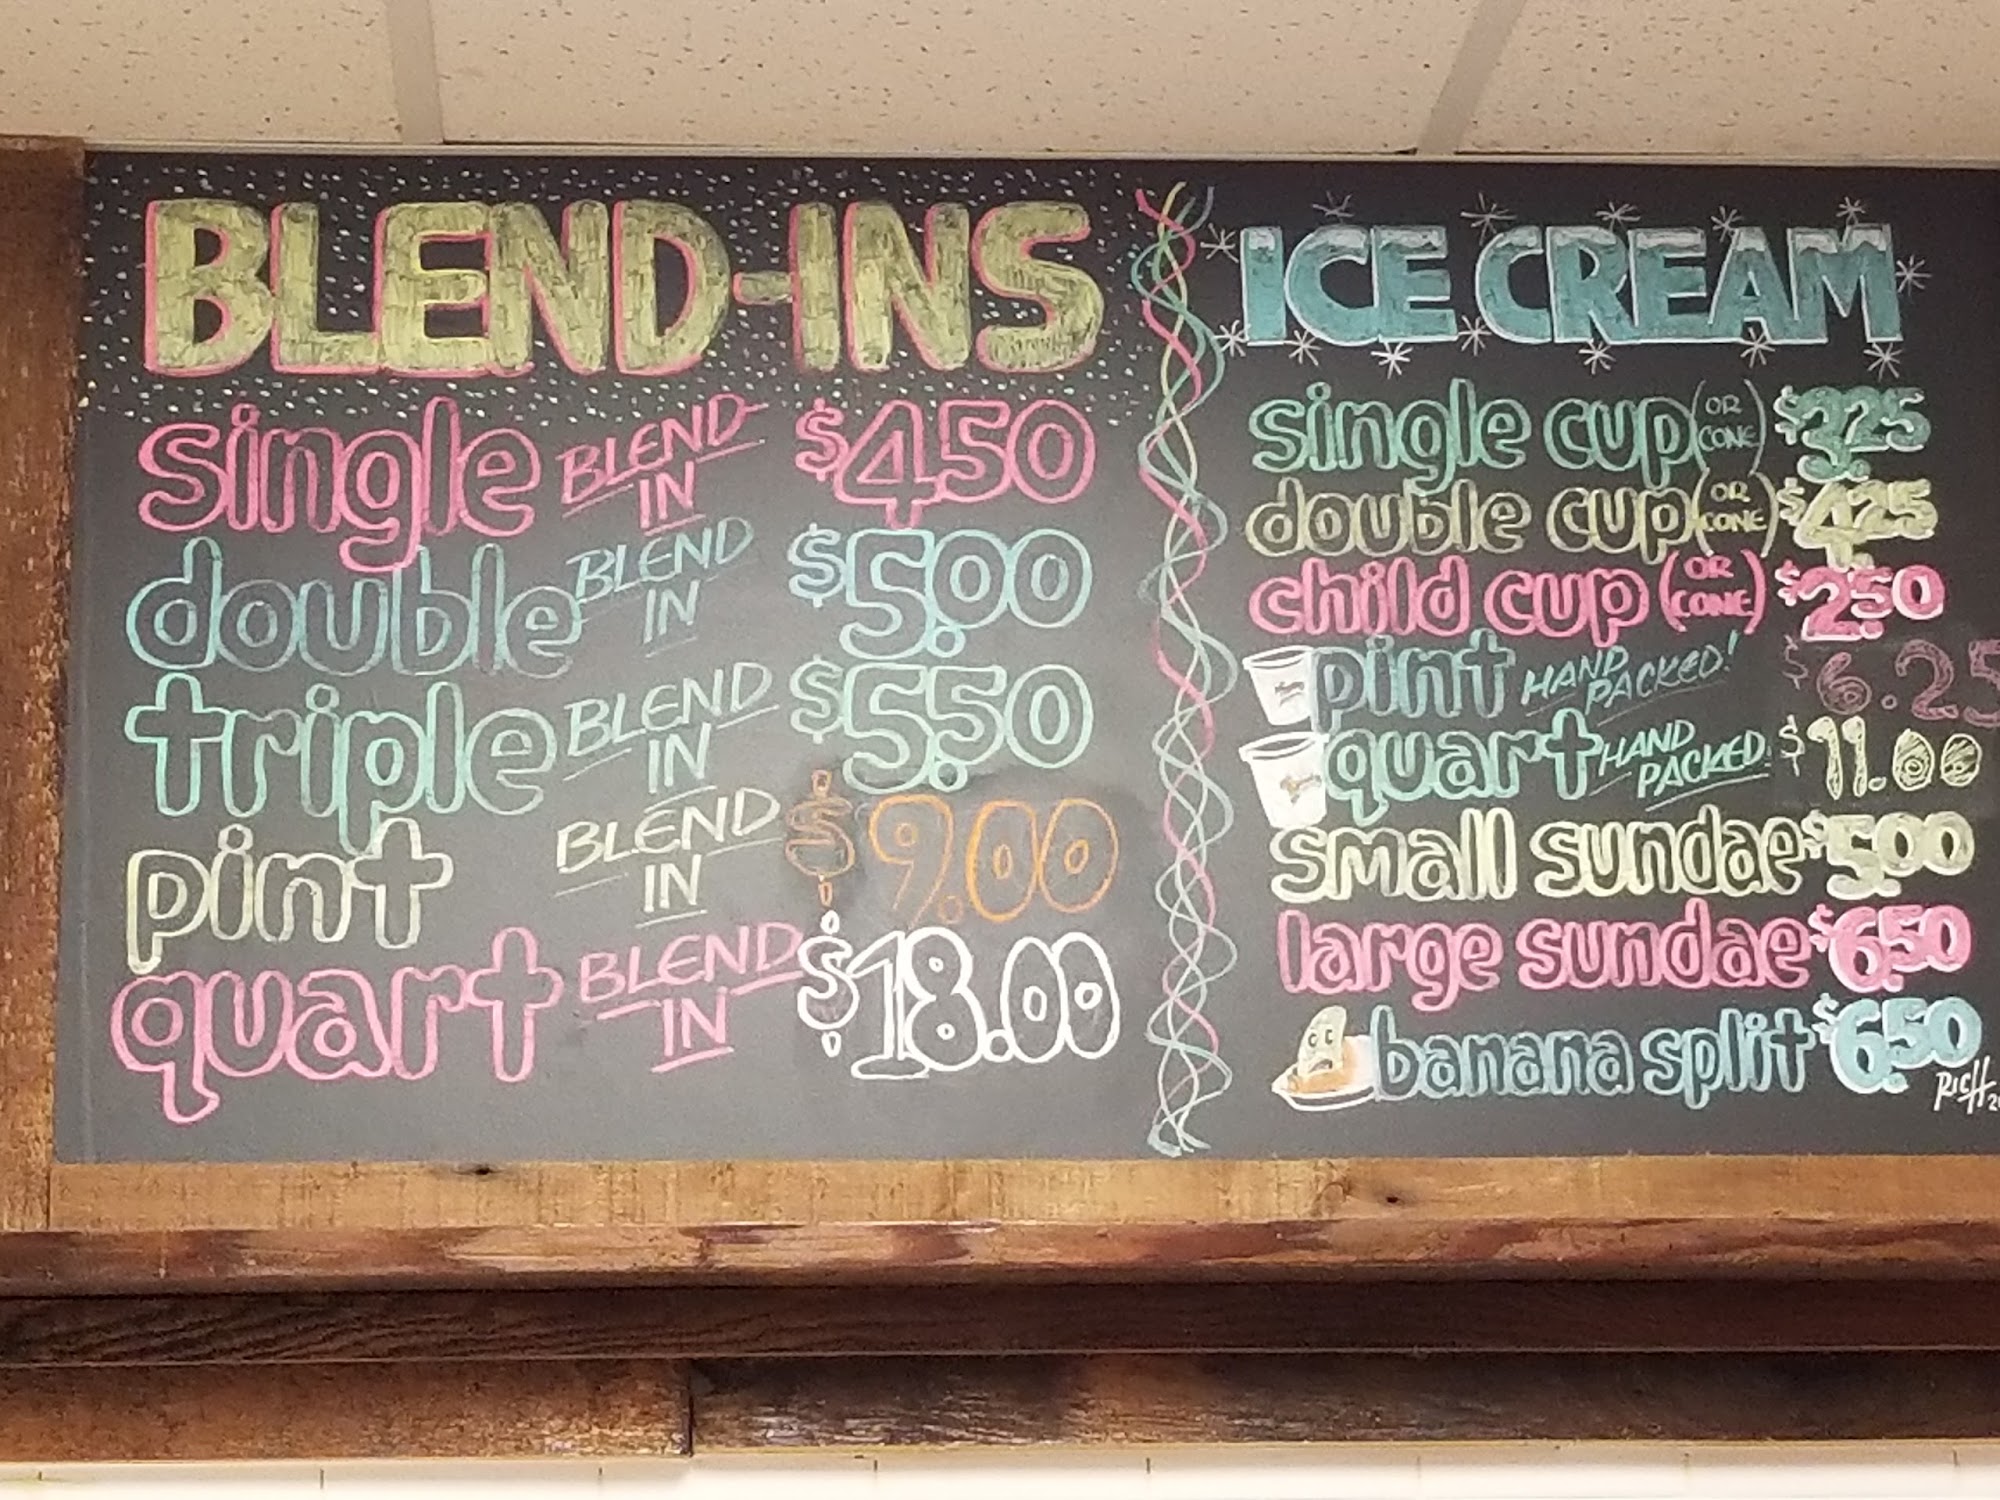 BLEND-INS
single BLEND-IN $4.50
double BLEND IN $5.00
triple BLEND IN $5.50
pint BLEND IN $9.00
quart BLEND IN $18.00
ICE CREAM
single cup (OR CONE) $3.25
double cup (OR CONE) $4.25
child cup (OR CONE) $2.50
pint HAND PACKED! $6.25
quart HAND PACKED! $11.00
small sundae $5.00
large sundae $6.50
banana split $6.50
RICH